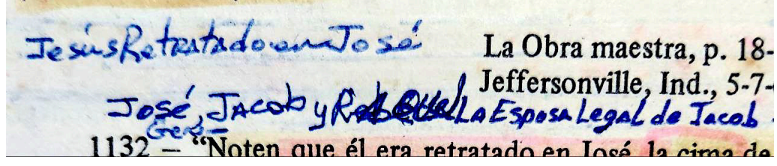 Jesús Retratado en José
La Obra maestra, p. 18-
Jeffersonville, Ind., 5-7-
José, Jacob y Raquel La Esposa Legal de Jacob
1132 – “Noten que él era retratado en José, la cima de